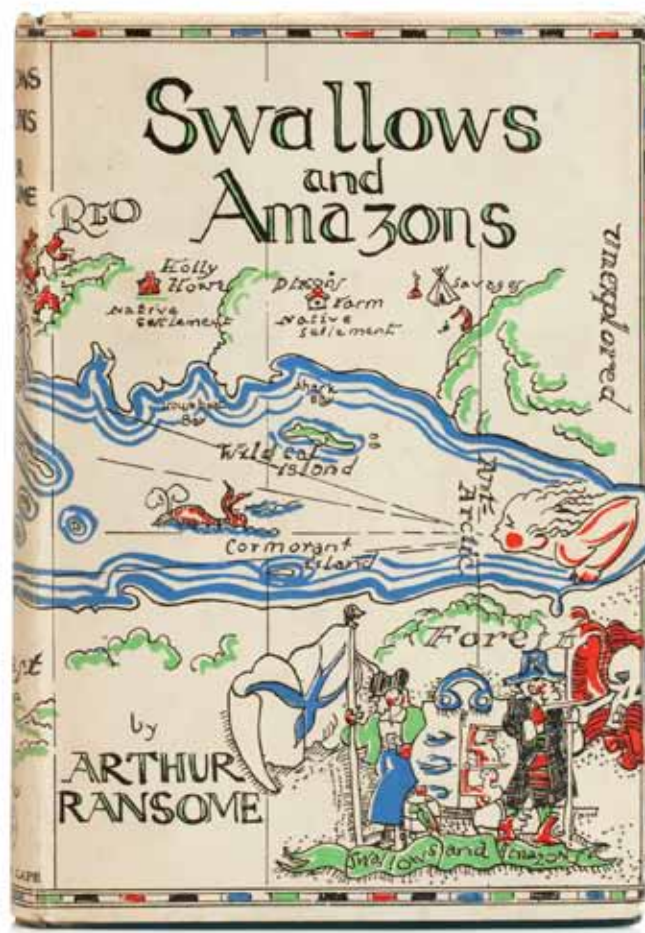 Swallows
and
Amazons
RIO
Holly
Howe
Native
settlement
Dixon's
Farm
Native
settlement
Savages
Unexplored
Shark
Bay
Wild cat
Island
Ant-
Arctic
Cormorant
Island
Forest
by
ARTHUR
RANSOME
Swallows and Amazons
CAPE